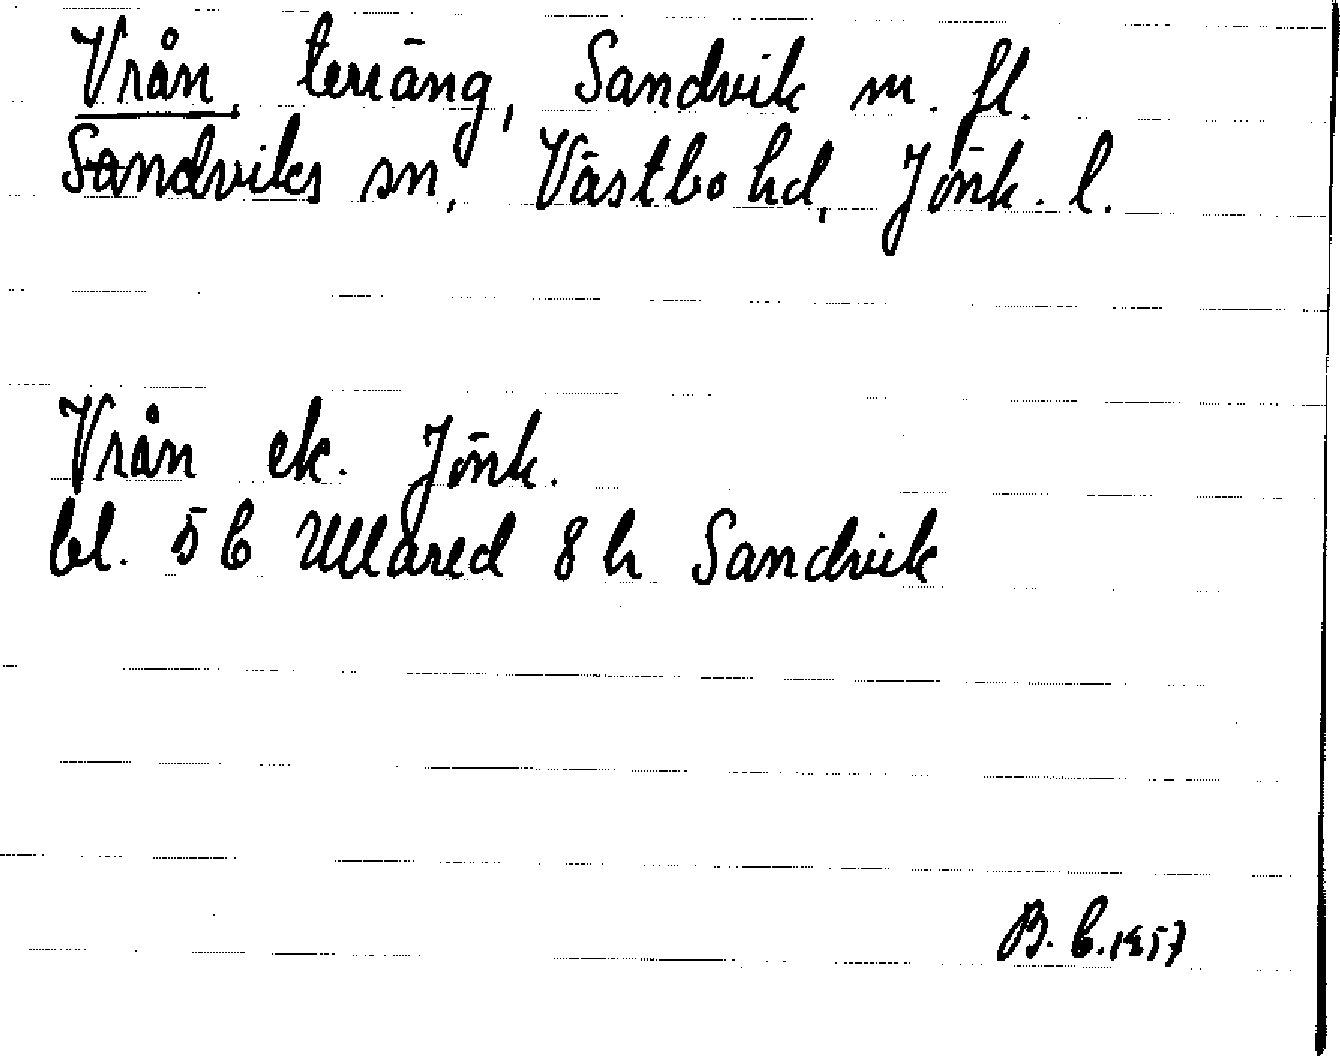 Vrån, terräng, Sandvik m. fl.
Sandviks sn, Västbo hd, Jönk. l.
Vrån ek. Jönk.
bl. 5 C Ullared 8 h Sandvik
B. C. 1957